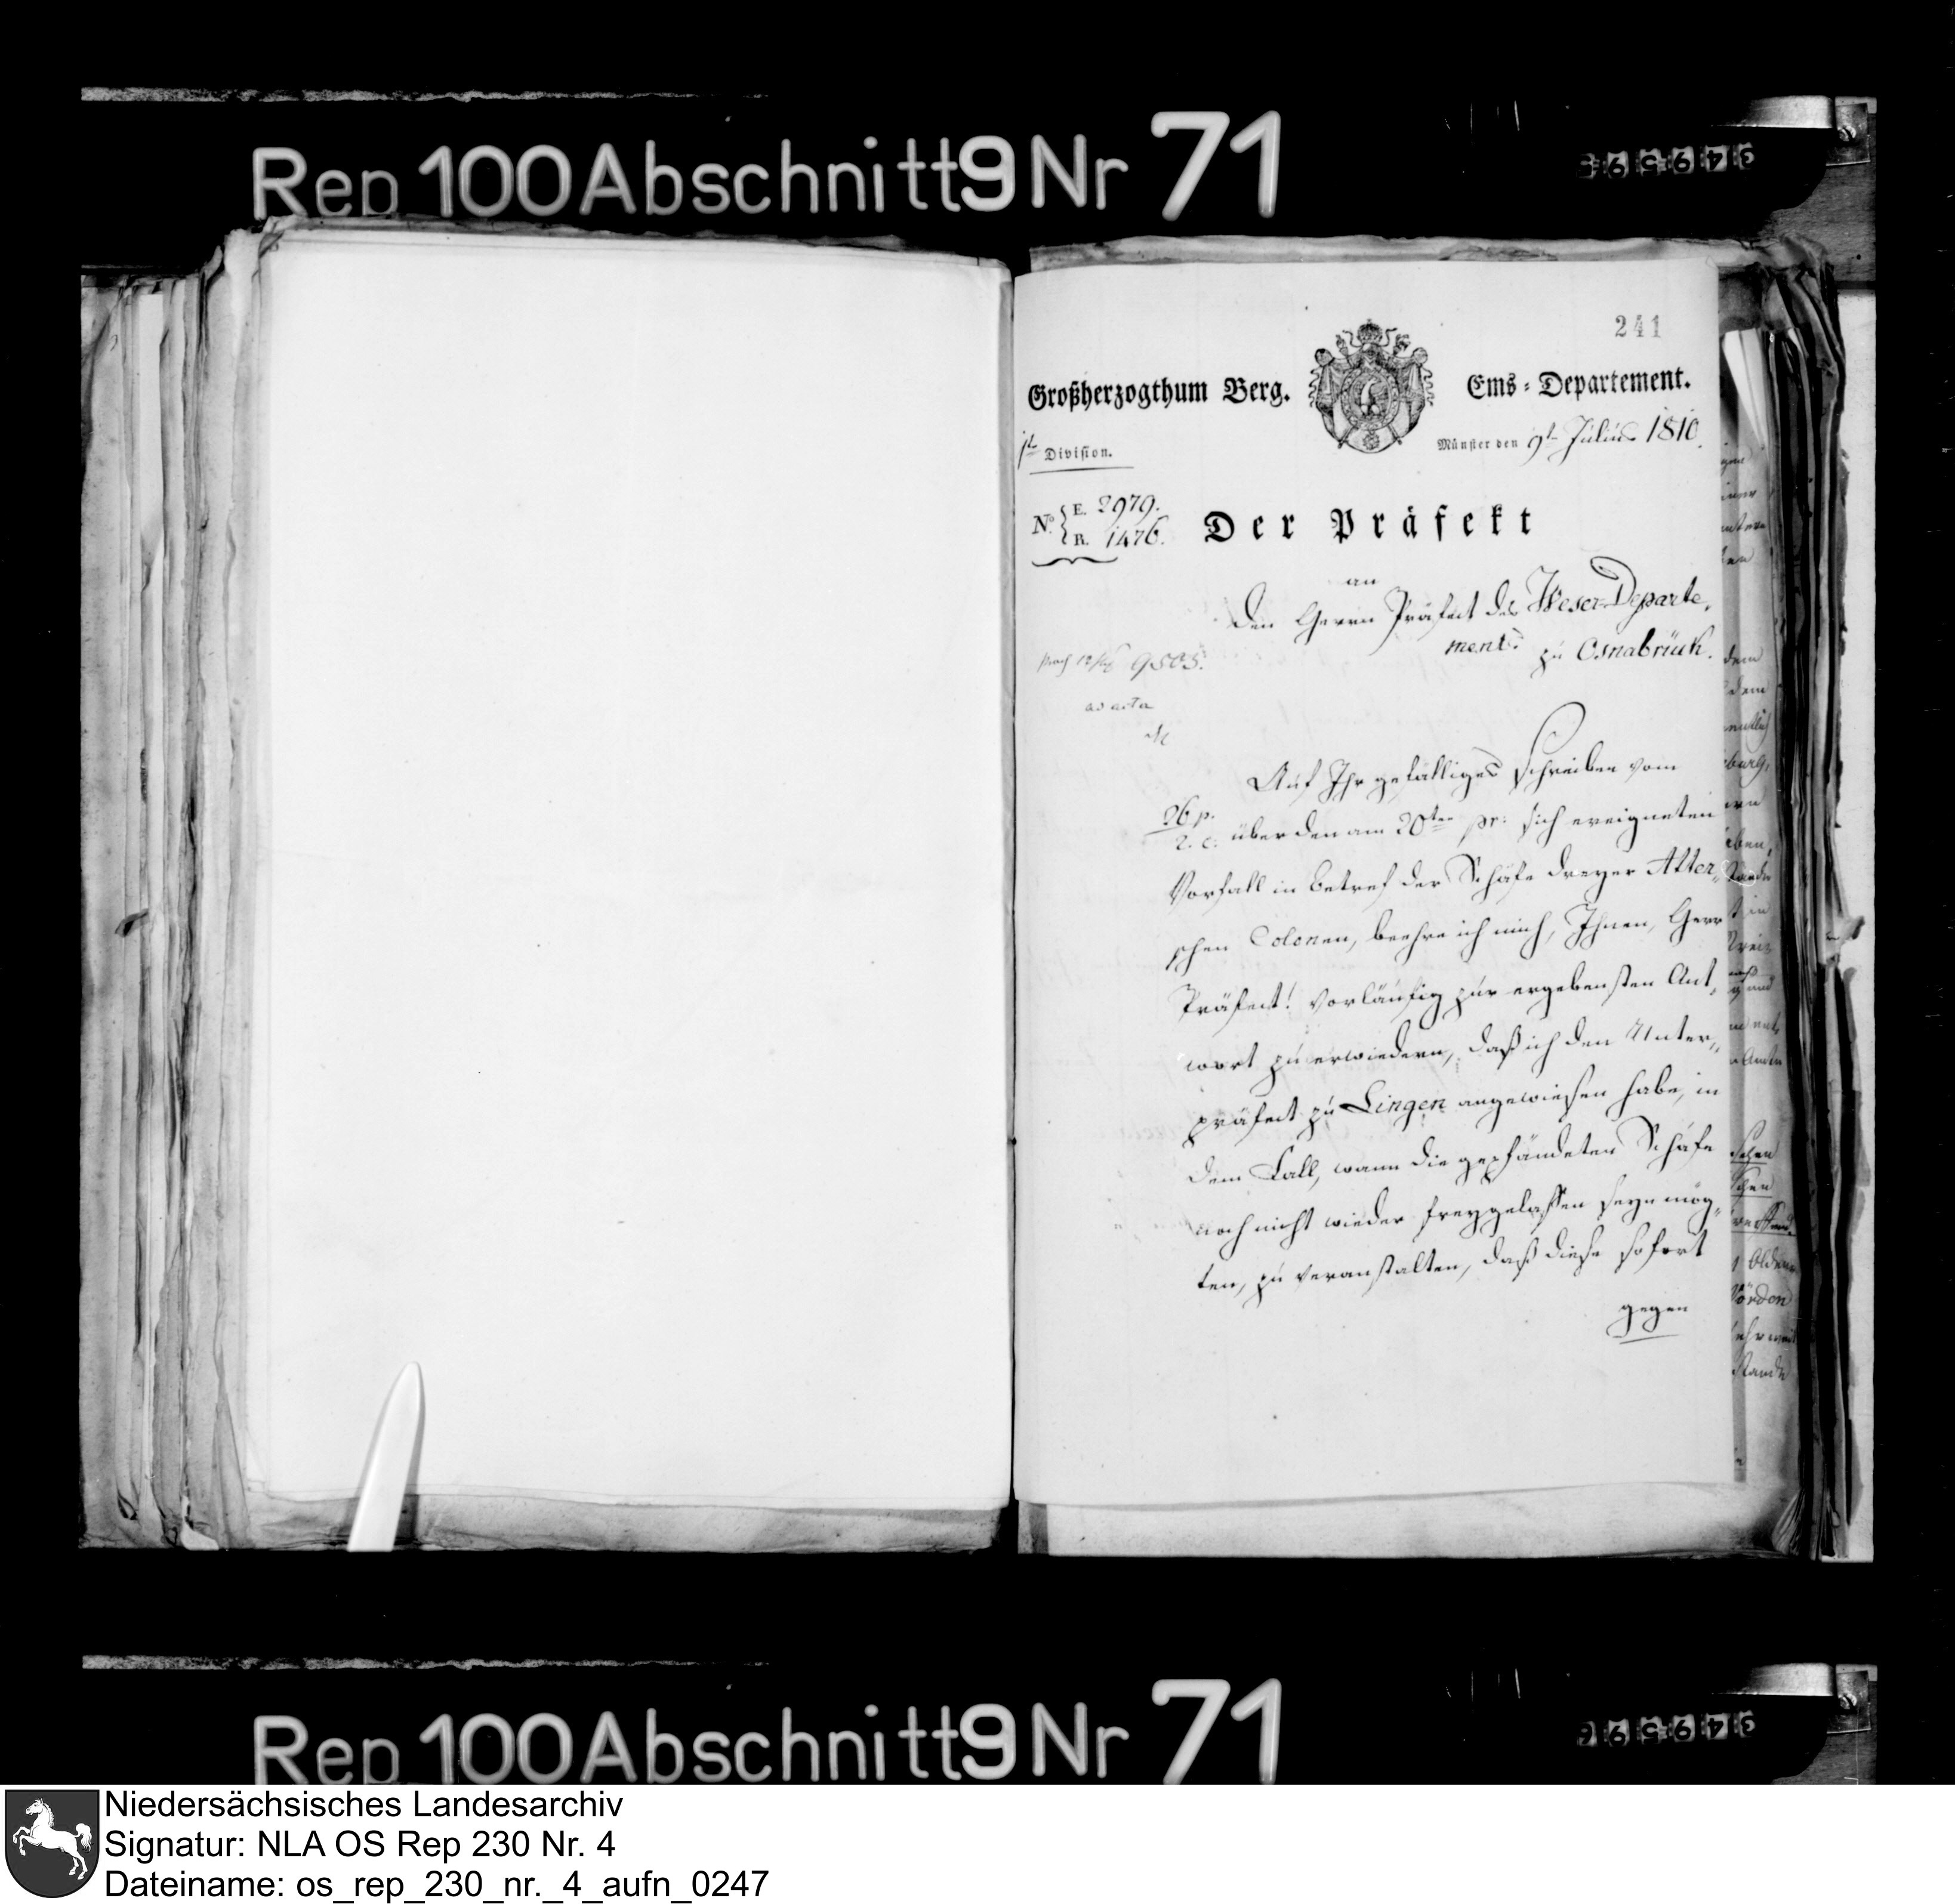 Rep 100 Abschnitt 9 Nr 71
241
Großherzogthum Berg. Ems-Departement.
1t Division.
Münster den 9t Julius 1810.
No. E. 2979.
R. 1476.
Der Präfekt
an
Den Herrn Präfect des Weser-Departe,
ments zu Osnabrück.
9503.
ad acta
Auf Ihr gefälliges Schreiben vom
26 p.
r. c. über den am 20ten pr: sich ereigneten
Vorfall in betref der Schafe dreyer Atter,,
schen Colonen, beehre ich mich, Ihnen, Herr
Präfect! vorläufig zur ergebensten Ant,
wort zu erwiedern, daß ich den Unter,,
präfect zu Lingen angewiesen habe, in
dem Fall, wann die gepfändeten Schafe
noch nicht wieder freygelassen seyn mög,,
ten, zu veranstalten, daß diese sofort
gegen
Rep 100 Abschnitt 9 Nr 71
Niedersächsisches Landesarchiv
Signatur: NLA OS Rep 230 Nr. 4
Dateiname: os_rep_230_nr._4_aufn_0247